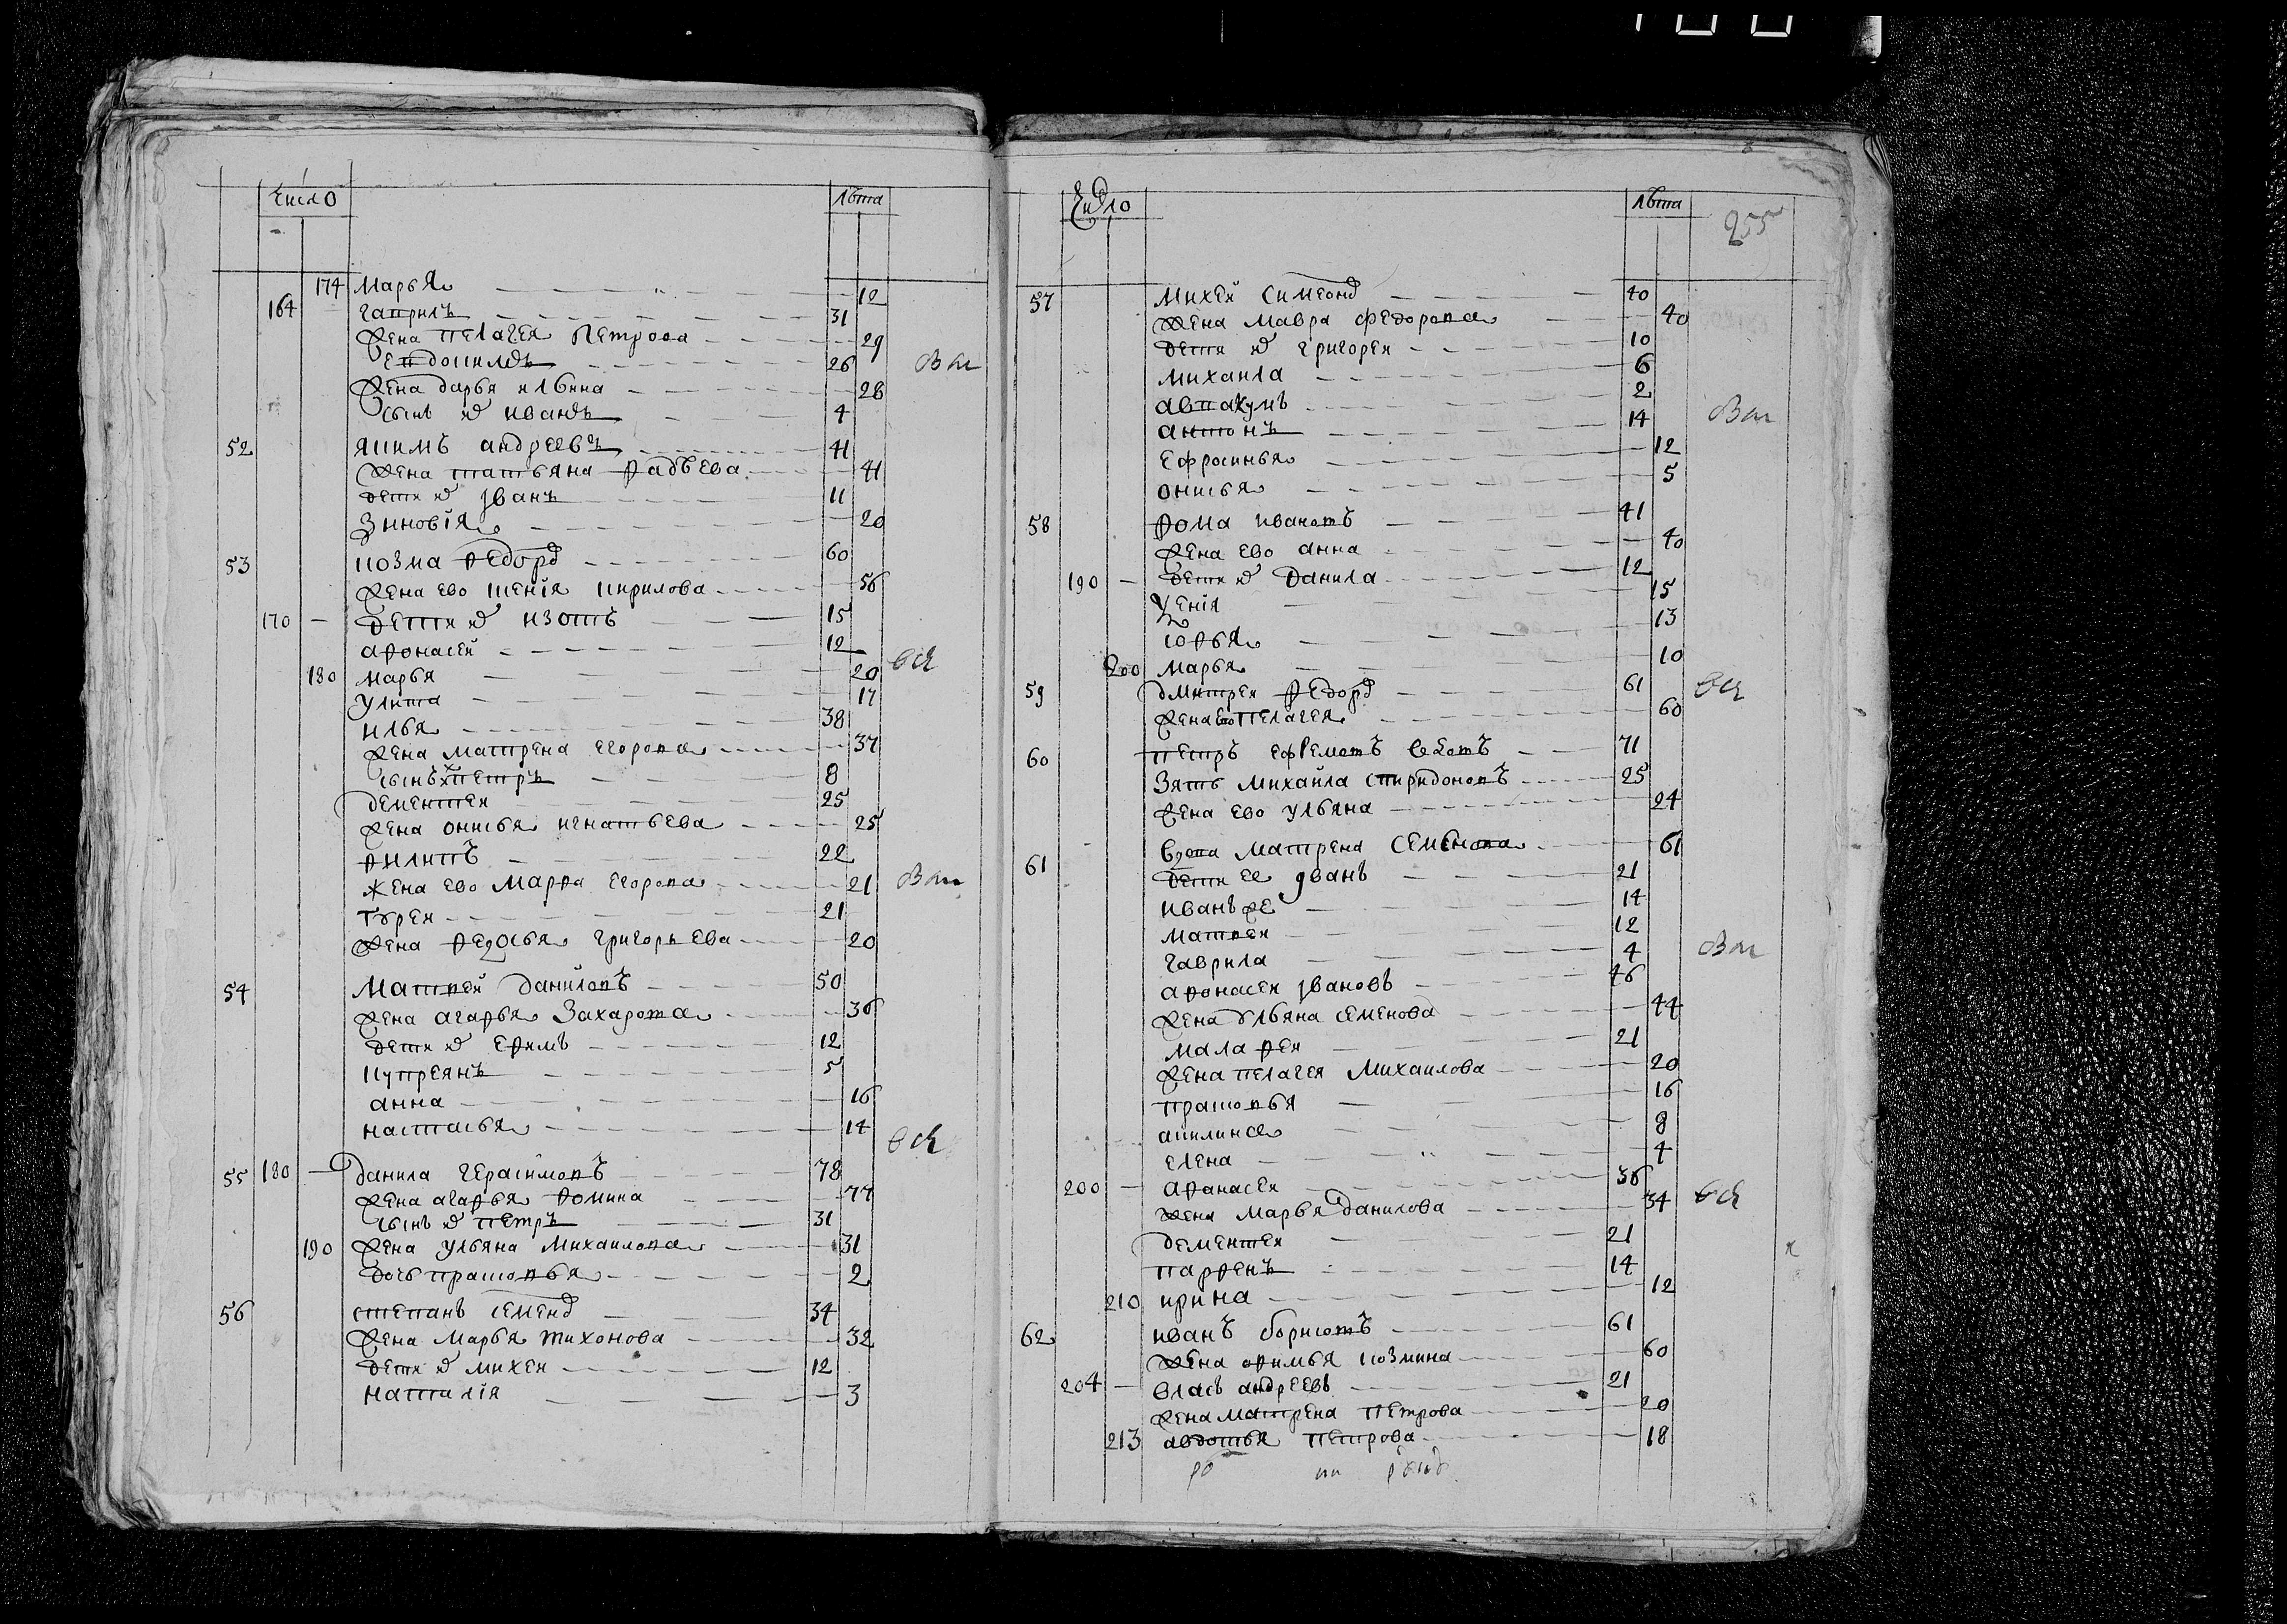 Число Лѣта
174 Марья 12
164 Гаврилъ 31
Жена Пелагея Петрова 29
Евдокимъ 26
Жена Дарья Ильина 28
Сынъ Иванъ 4
52 Якимъ Андреевъ 41
Жена Татьяна Фадѣева 41
Дети Іванъ 11
Зиновія 20
53 Козма Федоро 60
Жена ево Ксенія Кирилова 56
170 Дети Изотъ 15
Афонасей 12
180 Марья 20
Улита 17
Илья 38
Жена Матрена Егорова 37
Сынъ Петръ 8
Дементей 25
Жена Онисья Игнатьева 25
Филипъ 22
Жена ево Марфа Егорова 21
Гурей 21
Жена Федосья Григорьева 20
54 Матвей Даниловъ 50
Жена Агафья Захарова 36
Дети Ефимъ 12
Купреянъ 5
Анна 16
Настасья 14
55 180 Данила Герасимовъ 78
Жена Агафья Фомина 77
Сынъ Петръ 31
190 Жена Ульяна Михаилова 31
Дочь Прасковья 2
56 Степанъ Семено 34
Жена Марья Тихонова 32
Дети Михей 12
Наталія 3
Число Лѣта
255
57 Михей Симеоно 40
Жена Мавра Федорова 40
Дети Григорей 10
Михаила 6
Авакумъ 2
Антонъ 14
Ефросинья 12
Онисья 5
58 Фома Ивановъ 41
Жена ево Анна 40
190 Дети Данила 12
Ксенія 15
Софья 13
200 Марья 10
59 Дмитрей Федоро 61
Жена ево Пелагея 60
60 Петръ Ефремовъ 71
Зять Михайла Спиридоновъ 25
Жена ево Ульяна 24
61 Вдова Матрена Семенова 61
Дети ее Іванъ 21
Иванъ же 14
Матвей 12
Гаврила 4
Афонасей Івановъ 46
Жена Ульяна Семенова 44
Малафей 21
Жена Пелагея Михаилова 20
Прасковья 16
Акилина 8
Елена 4
200 Афанасей 36
Жена Марья Данилова 34
Дементей 21
Парфенъ 14
210 Ирина 12
62 Иванъ Борисовъ 61
Жена Афимья Козмина 60
204 Власъ Андреевъ 21
Жена Матрена Петрова 20
213 Авдотья Петрова 18